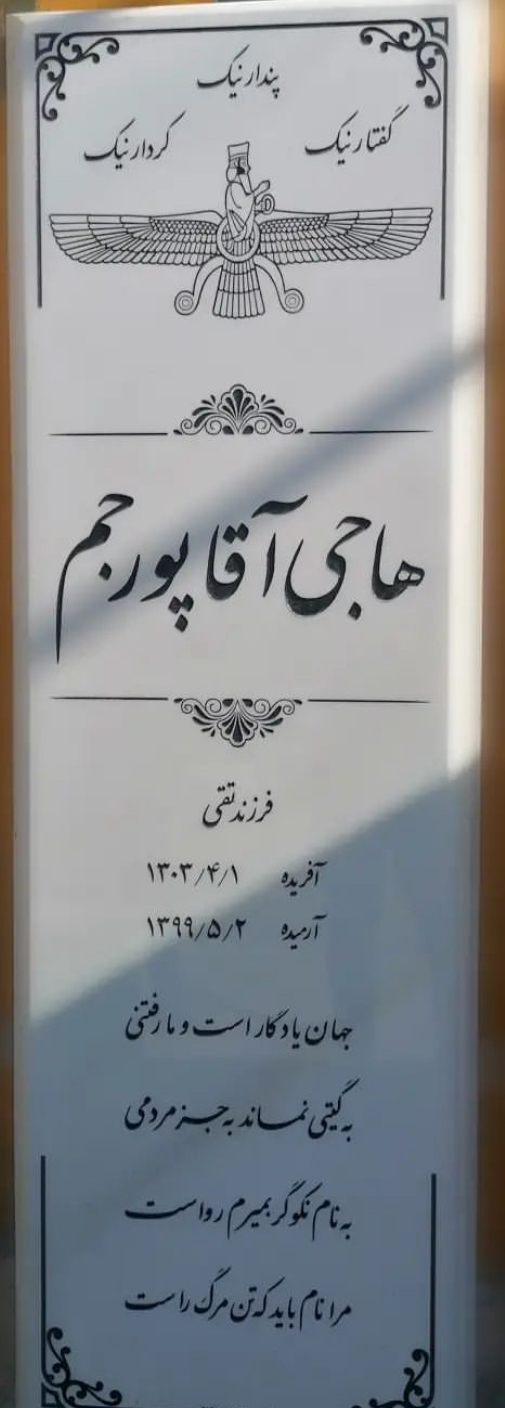 پندار نیک
گفتار نیک
کردار نیک
هاجی آقا پورجم
فرزند تقی
آفریده ۱۳۰۳/۴/۱
آرمیده ۱۳۹۹/۵/۲
جهان یادگار است و ما رفتنی
به گیتی نماند به جز مردمی
به نام نکو گر بمیرم رواست
مرا نام باید که تن مرگ راست